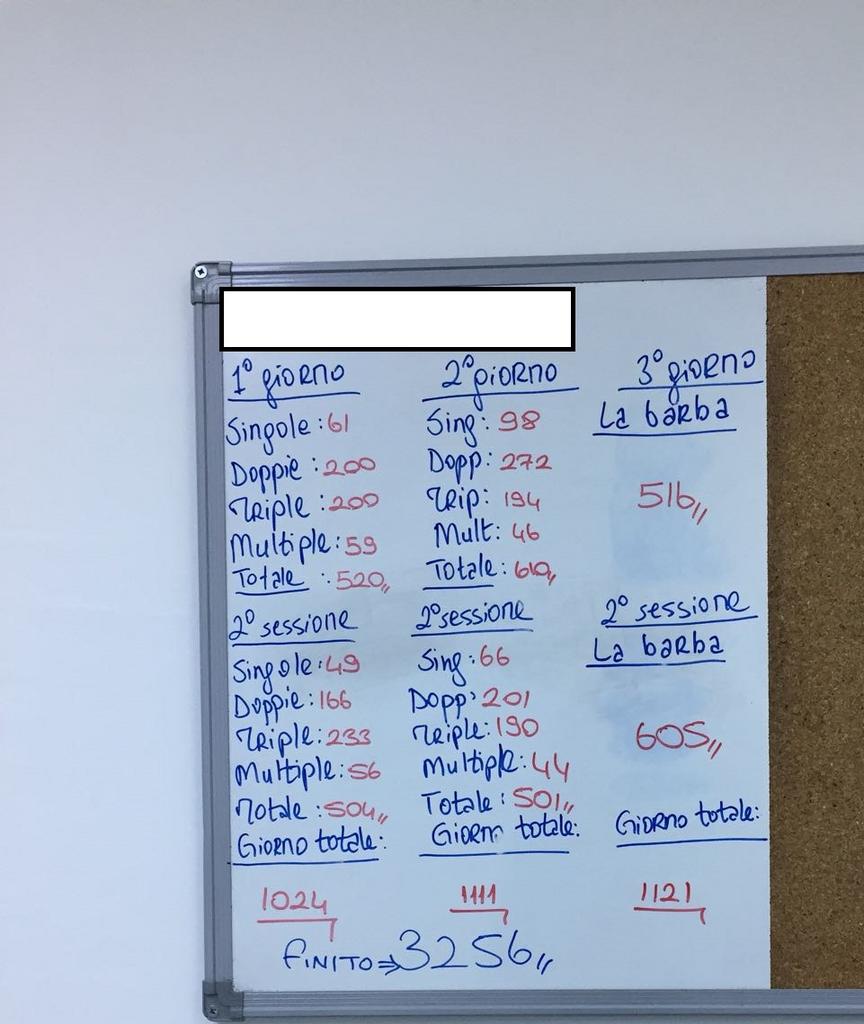 1º giorno
Singole: 61
Doppie: 200
Triple: 200
Multiple: 59
Totale: 520,,
2º sessione
Singole: 49
Doppie: 166
Triple: 233
Multiple: 56
Totale: 504,,
Giorno totale:
1024
2º giorno
Sing: 98
Dopp: 272
Trip: 194
Mult: 46
Totale: 610,,
2º sessione
Sing: 66
Dopp: 201
Triple: 190
Multiple: 44
Totale: 501,,
Giorno totale:
1111
3º giorno
La barba
516,,
2º sessione
La barba
605,,
Giorno totale:
1121
FINITO ⇒ 3256,,